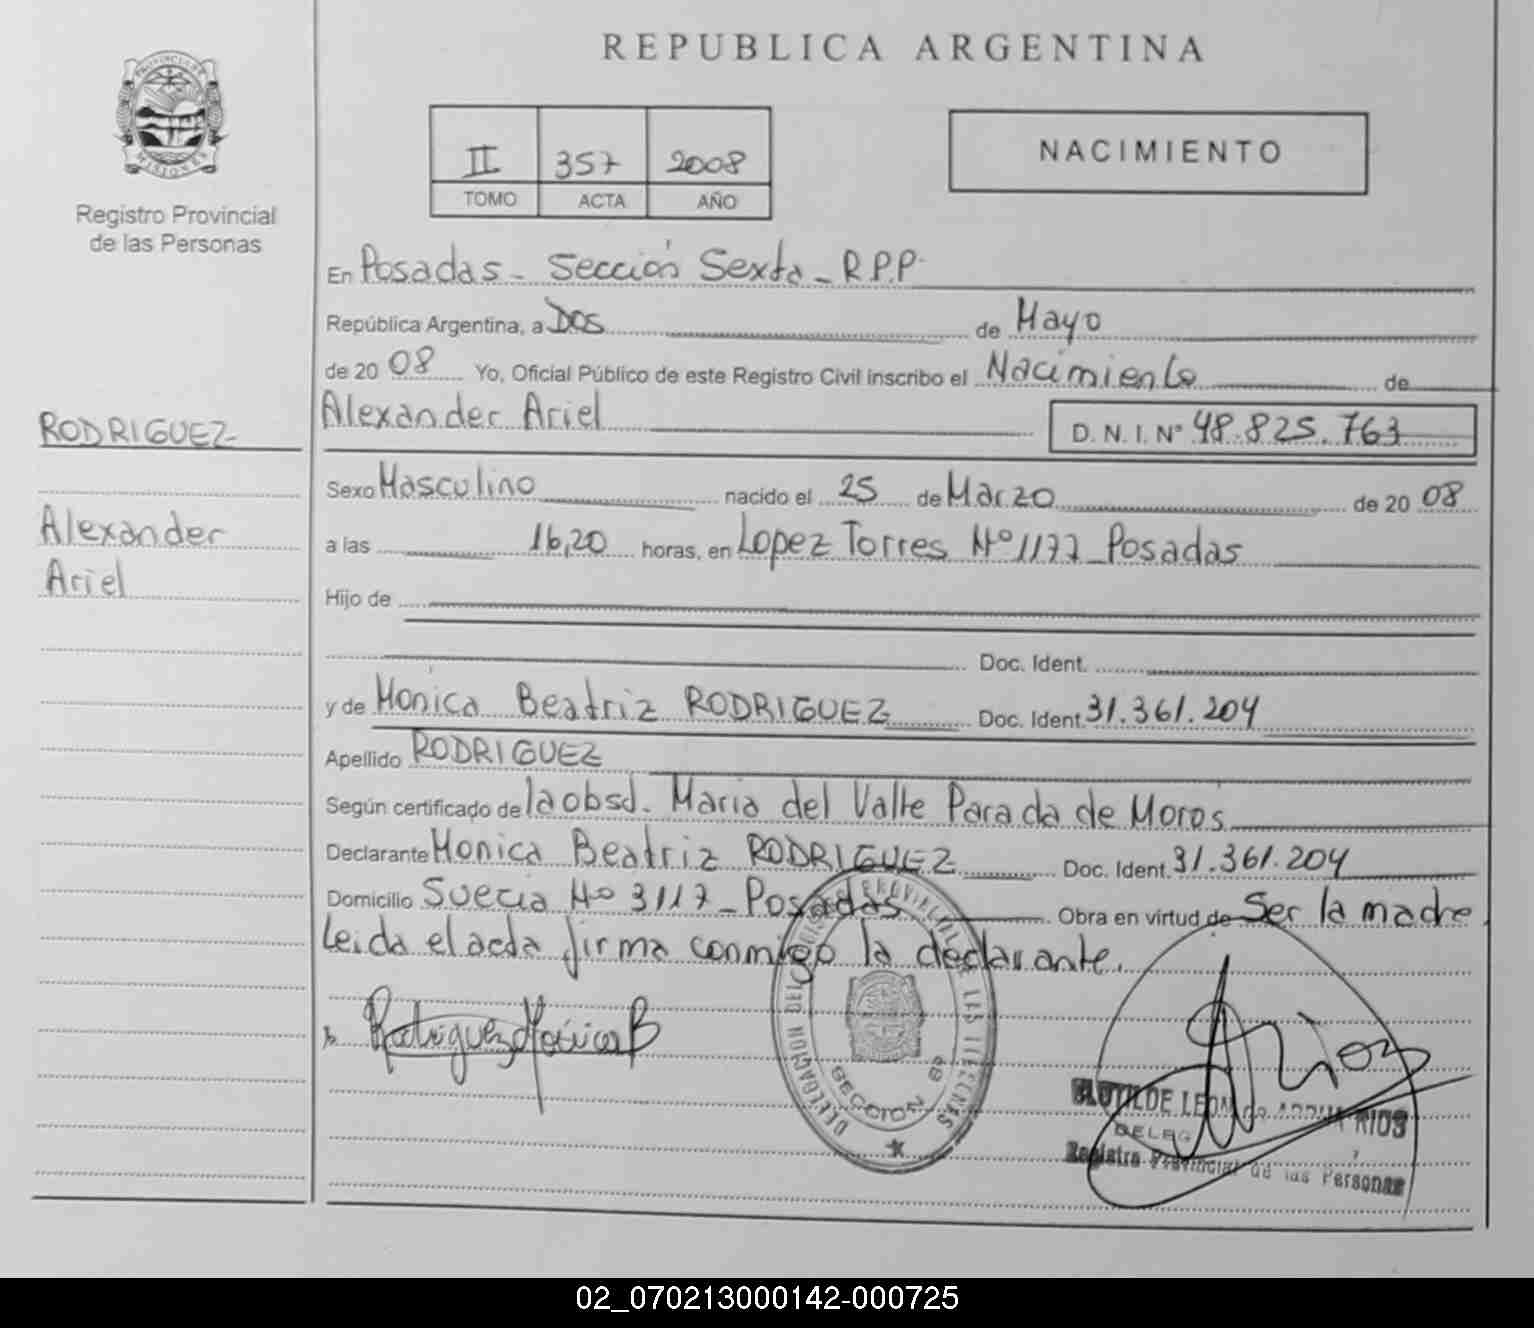 REPUBLICA ARGENTINA
PROVINCIA DE
MISIONES
Registro Provincial
de las Personas
II 357 2008
TOMO ACTA AÑO
NACIMIENTO
En Posadas - Sección Sexta - R.P.P.
República Argentina, a Dos de Mayo
de 20 08 Yo, Oficial Público de este Registro Civil inscribo el Nacimiento de
Alexander Ariel D. N. I. Nº 48.825.763
RODRIGUEZ
Alexander
Ariel
Sexo Masculino nacido el 25 de Marzo de 20 08
a las 16,20 horas, en Lopez Torres Nº 1177 - Posadas
Hijo de
Doc. Ident.
y de Monica Beatriz RODRIGUEZ Doc. Ident. 31.361.204
Apellido RODRIGUEZ
Según certificado de la obsd. Maria del Valle Parada de Moros
Declarante Monica Beatriz RODRIGUEZ Doc. Ident. 31.361.204
Domicilio Suecia Nº 3117 - Posadas Obra en virtud de Ser la madre.
Leida el acta firma conmigo la declarante.
Rodriguez Monica B
DELEGACION DEL REGISTRO PROVINCIAL DE LAS PERSONAS
SECCION 6ª
Rios
CLOTILDE LEON RIOS
DELEG
Registro Provincial de las Personas
02_070213000142-000725